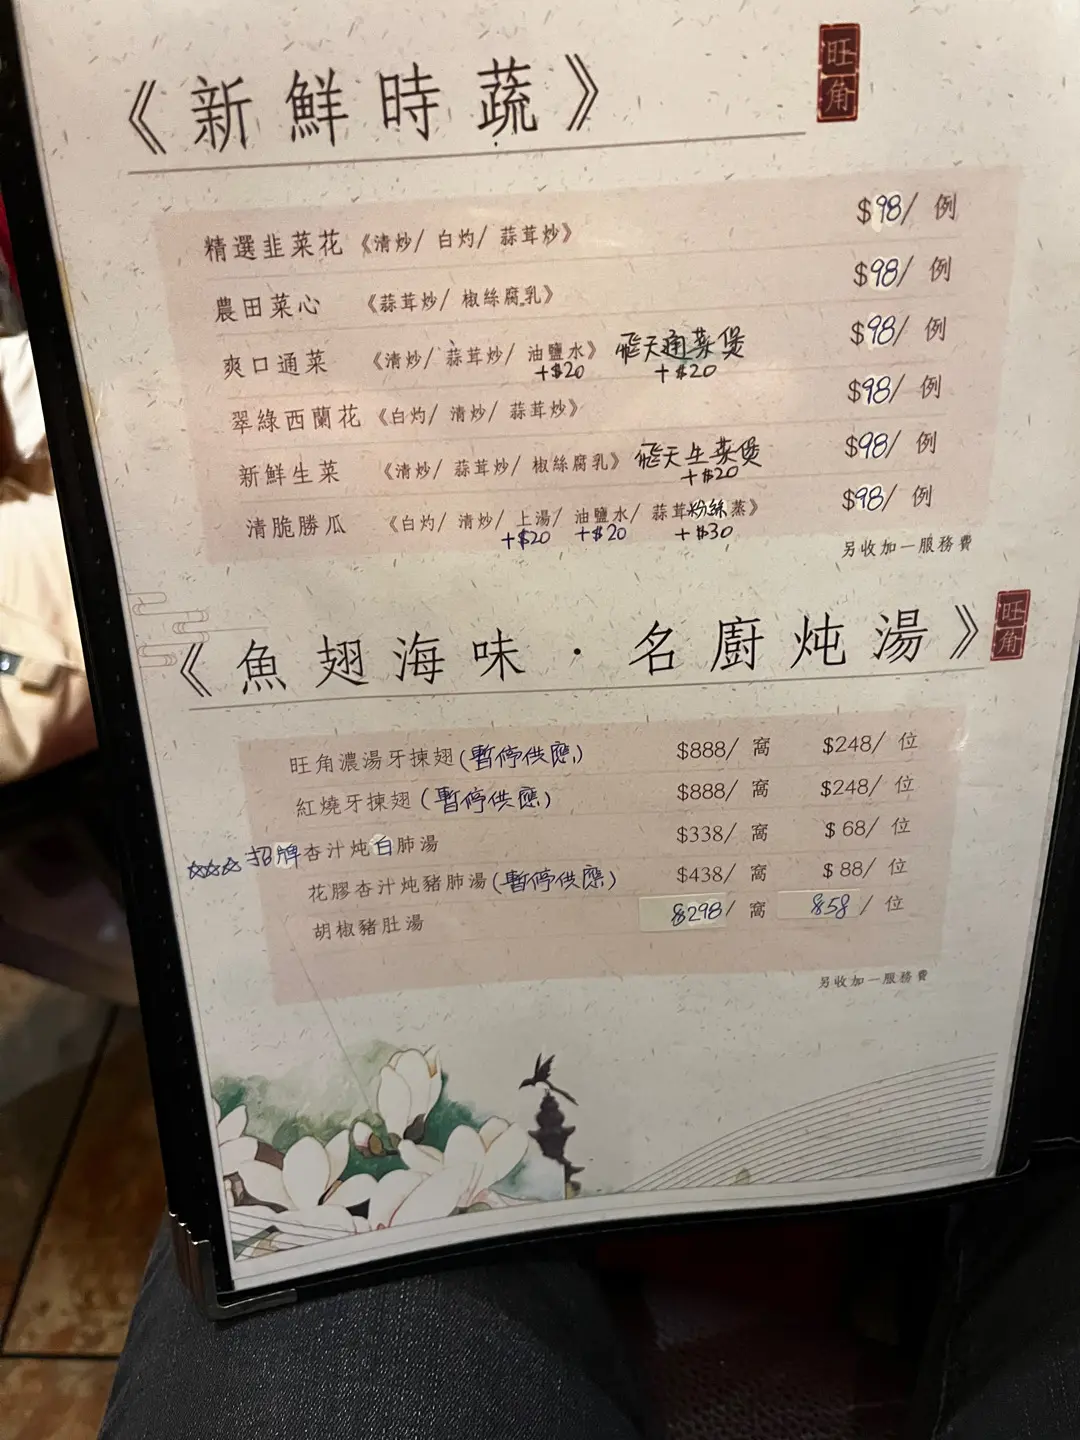 《新鮮時蔬》
旺角
精選韭菜花《清炒/ 白灼/ 蒜茸炒》 $98/ 例
農田菜心 《蒜茸炒/ 椒絲腐乳》 $98/ 例
爽口通菜 《清炒/ 蒜茸炒/ 油鹽水》 飛天通菜煲 $98/ 例
+$20 +$20
翠綠西蘭花《白灼/ 清炒/ 蒜茸炒》 $98/ 例
新鮮生菜 《清炒/ 蒜茸炒/ 椒絲腐乳》 飛天生菜煲 $98/ 例
+$20
清脆勝瓜 《白灼/ 清炒/ 上湯/ 油鹽水/ 蒜茸粉絲蒸》 $98/ 例
+$20 +$20 +$30
另收加一服務費
《魚翅海味·名廚炖湯》
旺角
旺角濃湯牙揀翅(暫停供應) $888/ 窩 $248/ 位
紅燒牙揀翅(暫停供應) $888/ 窩 $248/ 位
☆☆☆招牌杏汁炖白肺湯 $338/ 窩 $68/ 位
花膠杏汁炖豬肺湯(暫停供應) $438/ 窩 $88/ 位
胡椒豬肚湯 $298/ 窩 $58/ 位
另收加一服務費